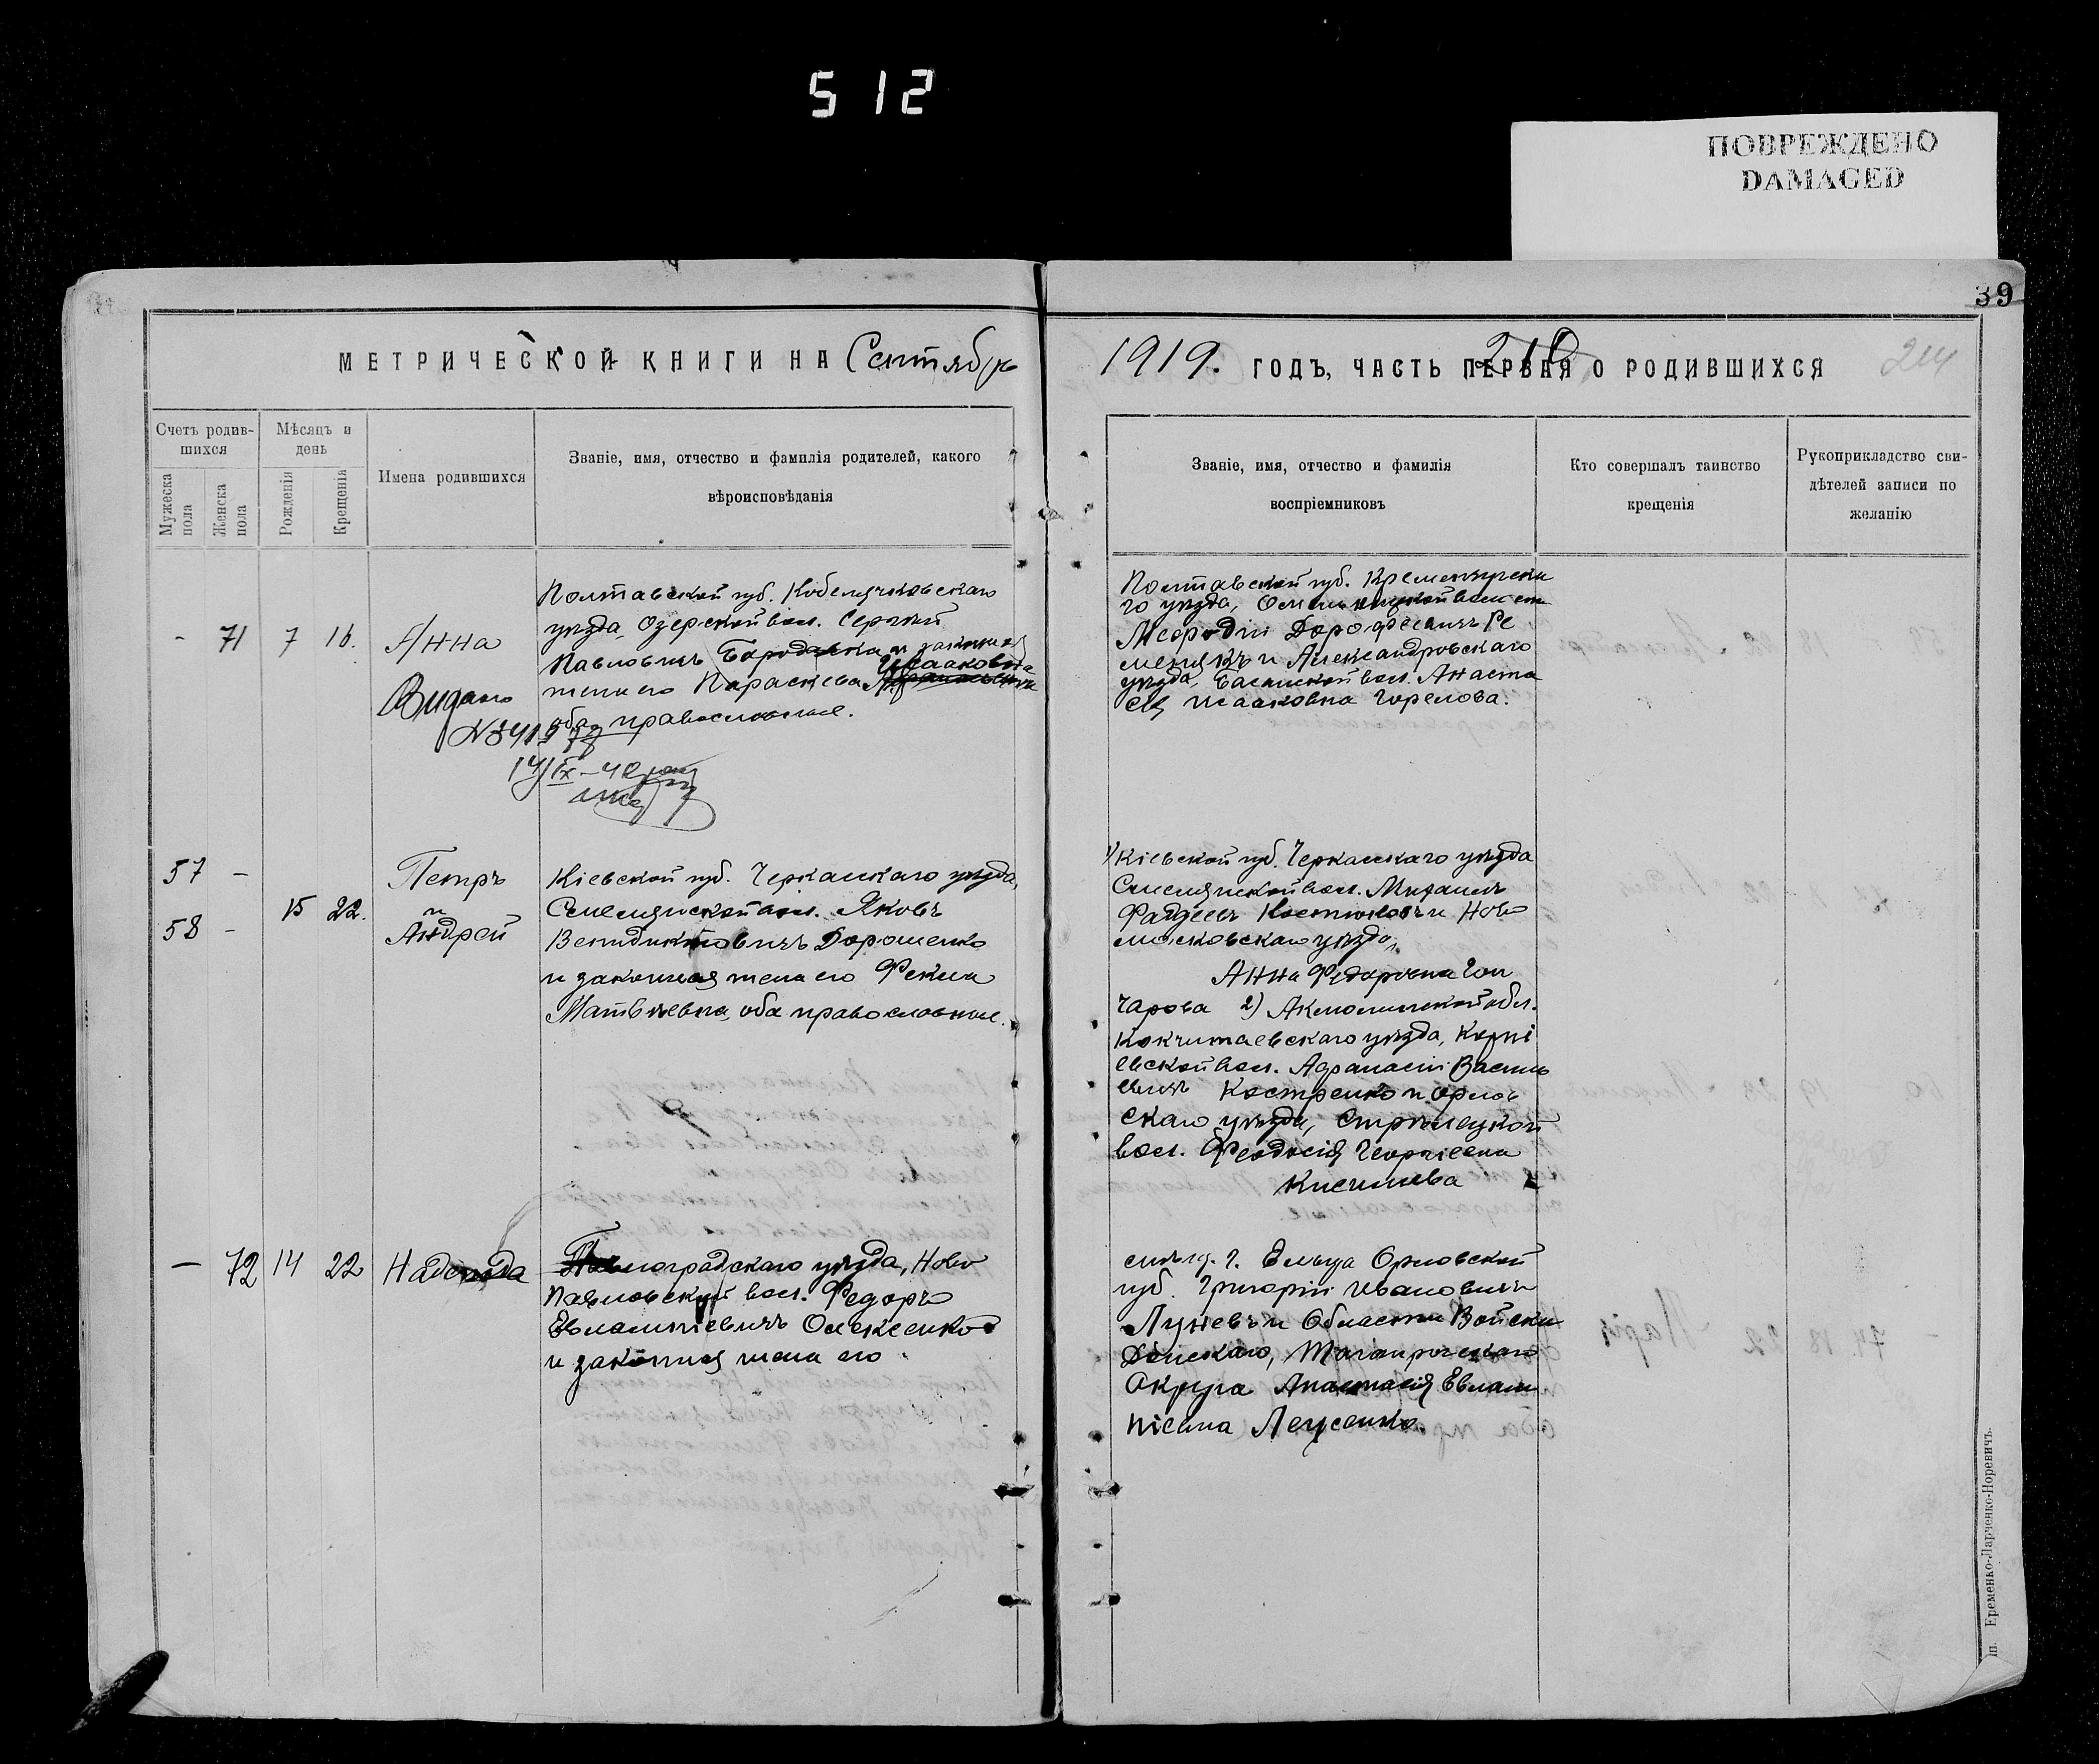 512
ПОВРЕЖДЕНО
DAMAGED
39
МЕТРИЧЕСКОЙ КНИГИ НА Сентябрь
1919. ГОДЪ, ЧАСТЬ ПЕРВАЯ О РОДИВШИХСЯ
210
214
Счетъ родив-
шихся
Мѣсяцъ и
день
Мужеска
пола
Женска
пола
Рожденія
Крещенія
Имена родившихся
Званіе, имя, отчество и фамилія родителей, какого
вѣроисповѣданія
Званіе, имя, отчество и фамилія
воспріемниковъ
Кто совершалъ таинство
крещенія
Рукоприкладство сви-
дѣтелей записи по
желанію
- 71 7 16. Анна
Видано
Полтавской губ. Кобелякскаго
уѣзда, Озерской вол. Сергѣй
Павловичъ Бородавка и законная
Исааковна
жена его Параскева
оба православные.
14/IX-40
Полтавской губ. Кременчугска
го уѣзда,
Мефодій Дорофеевичъ Ре
менякъ и Александровскаго
уѣзда, Басанской вол. Анаста
сія Исааковна Горелова.
57 -
58 -
15 22.
Петръ
и
Андрей
Кіевской губ. Черкасскаго уѣзда,
Смелянской вол. Яковъ
Венидиктовичъ Дорошенко
и законная жена его Фекла
Матвѣевна, оба православные.
1) Кіевской губ. Черкасскаго уѣзда
Смелянской вол. Михаилъ
Фадеевъ и Ново
московскаго уѣзда,
Анна Федоровна Гон
чарова 2) Акмолинской обл.
Кокчетаевскаго уѣзда,
евской вол. Афанасій Василь
евичъ Костренко и Орлов
скаго уѣзда, Стрѣлецкой
вол. Феодосія Георгіевна
Киселева
- 72 14 22 Надежда
Павлоградскаго уѣзда, Ново
Павловской вол. Федоръ
Евлампіевичъ Олексенко
и законная жена его
г. Ельца Орловской
губ. Григорій Ивановичъ
Луневъ и Области Войска
Донскаго, Таганрогскаго
Округа Анастасія Евлам
піевна
п. Еременко-Ларченко-Норевичъ.